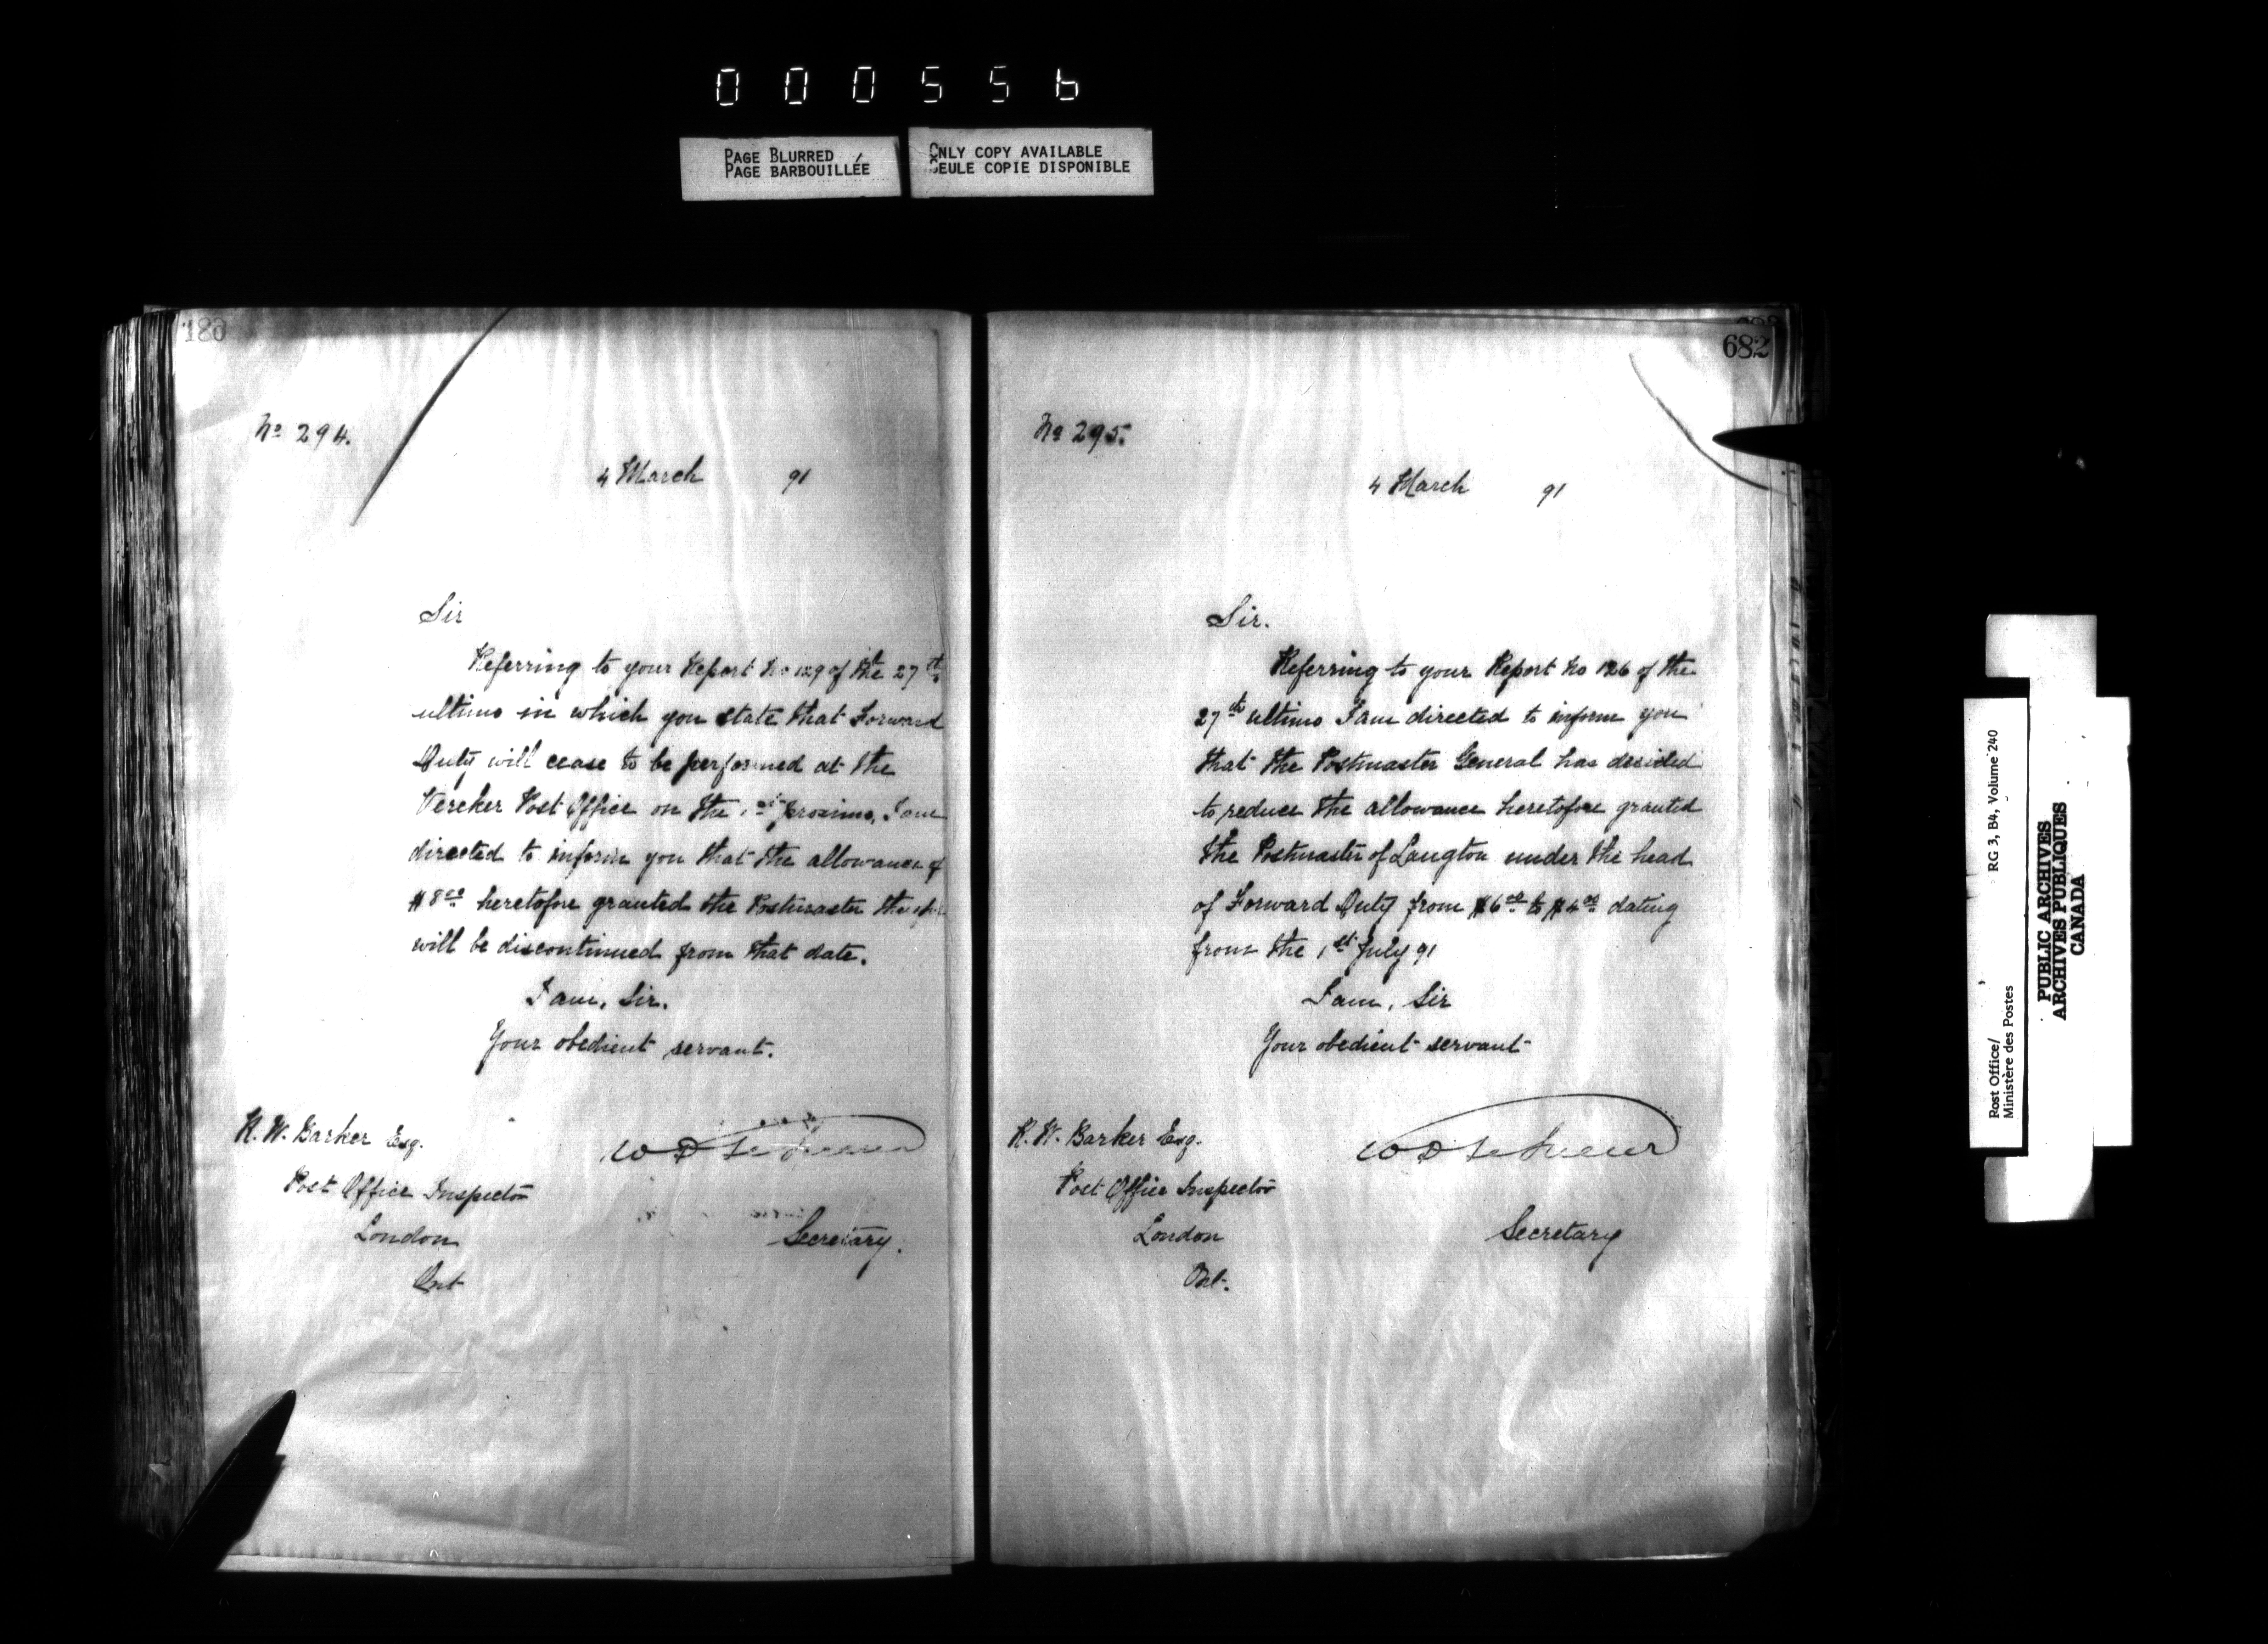 000556
PAGE BLURRED
PAGE BARBOUILLÉE
ONLY COPY AVAILABLE
SEULE COPIE DISPONIBLE
No 294.
4 March 91
Sir
Referring to your Report No 129 of the 27th
ultimo in which you state that Forward
Duty will cease to be performed at the
Vereker Post Office on the 1st proximo, I am
directed to inform you that the allowance of
$8.00 heretofore granted the Postmaster
will be discontinued from that date.
I am, Sir.
Your obedient servant.
R. W. Barker Esq.
Post Office Inspector
London
Ont
W D Le Sueur
Secretary.
682
No 295.
4 March 91
Sir.
Referring to your Report No 126 of the
27th ultimo I am directed to inform you
that the Postmaster General has decided
to reduce the allowance heretofore granted
the Postmaster of Langton under the head
of Forward Duty from $6.00 to $4.00 dating
from the 1st July 91
I am, Sir
Your obedient servant
R. W. Barker Esq.
Post Office Inspector
London
Ont.
W D Le Sueur
Secretary
Post Office/ RG 3, B4, Volume 240
Ministère des Postes
PUBLIC ARCHIVES
ARCHIVES PUBLIQUES
CANADA